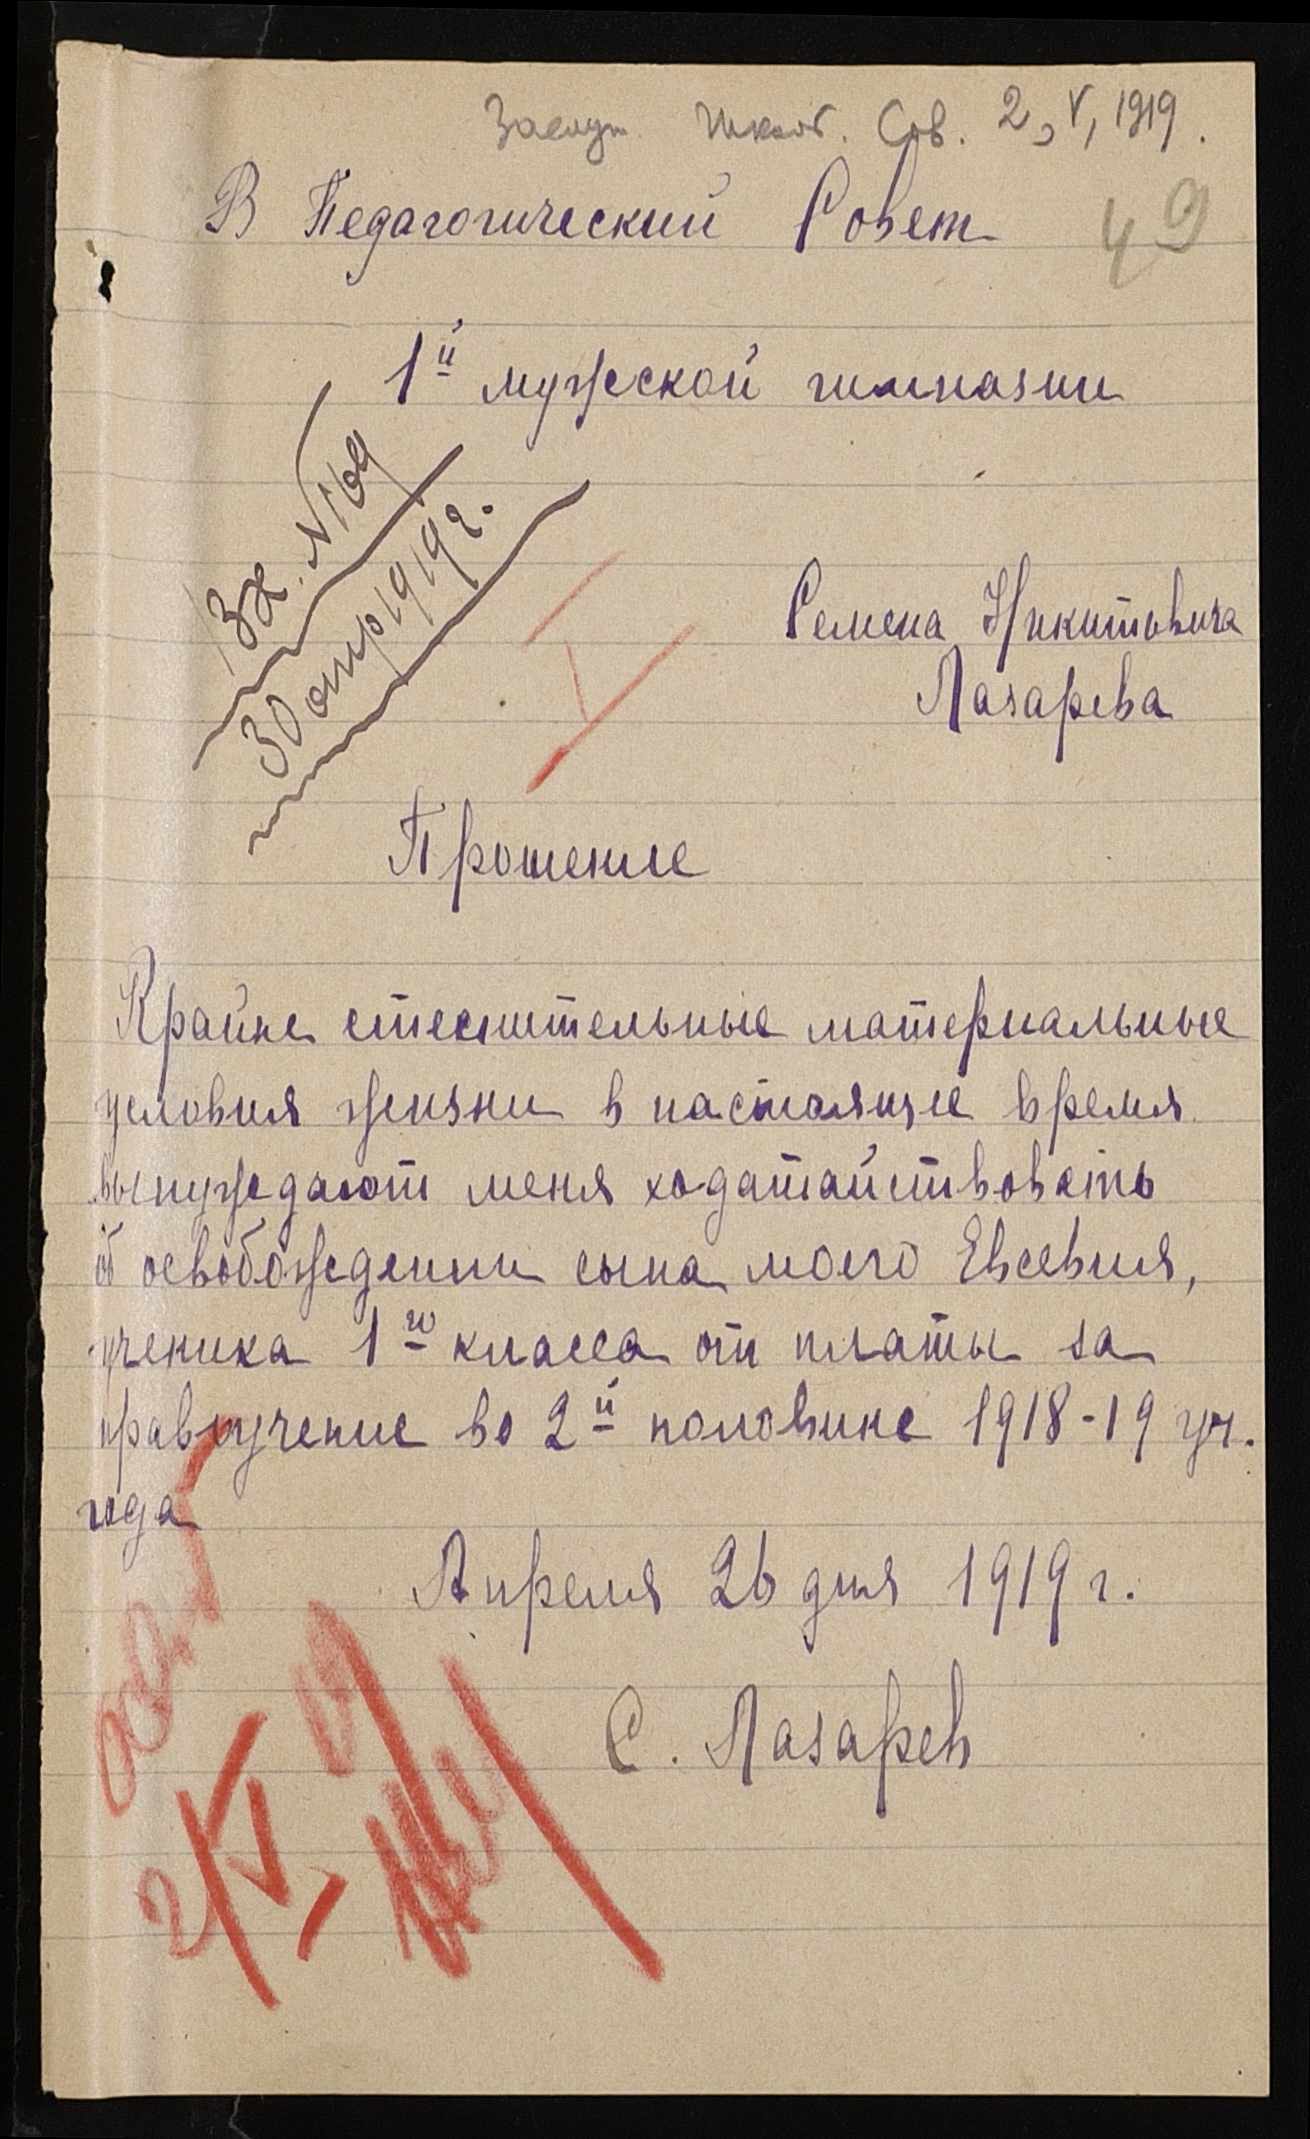 Заслуш. Школ. Сов. 2, V, 1919.
49
В Педагогический Совет
1й мужской гимназии
Вх. № 169
30 апр 1919 г.
I
Семена Никитовича
Лазарева
Прошение
Крайне стеснительные материальные
условия жизни в настоящее время
вынуждают меня ходатайствовать
об освобождении сына моего Евсевия,
ученика 1го класса от платы за
правоучение во 2й половине 1918-19 уч.
года
Апреля 26 дня 1919 г.
С. Лазарев
2/V